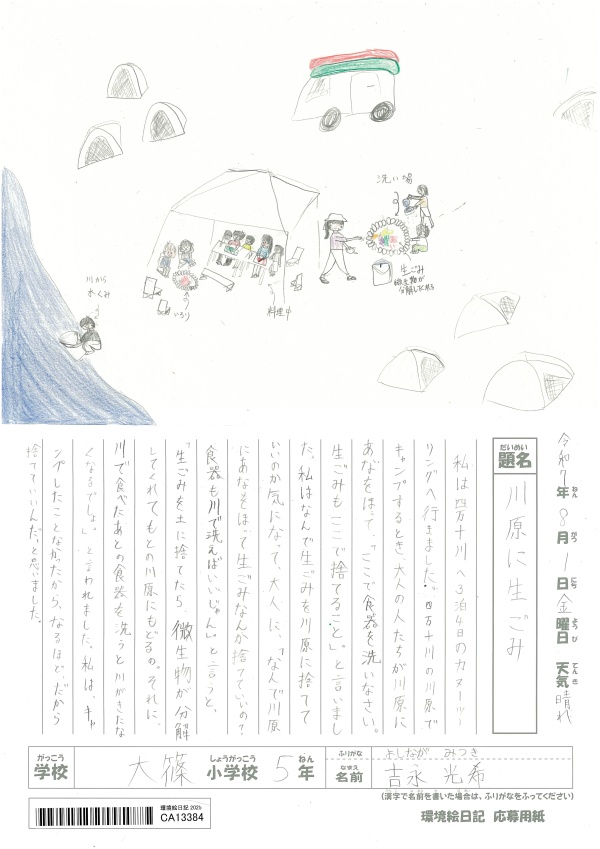 洗い場
生ごみ
微生物が
分解してくれる
川から
水くみ
いろり
料理中
令和7年 8月 1日 金曜日 天気 晴れ
ねん がつ にち ようび てんき
だいめい
題名
川原に生ごみ
私は四万十川へ3泊4日のカヌーツー
リングへ行きました。四万十川の川原で
キャンプするとき、大人の人たちが川原に
あなをほって、「ここで食器を洗いなさい。
生ごみもここで捨てること。」と言いまし
た。私はなんで生ごみを川原に捨てて
いいのか気になって、大人に、「なんで川原
にあなをほって生ごみなんか捨てていいの?
食器も川で洗えばいいじゃん。」と言うと、
「生ごみを土に捨てたら、微生物が分解
してくれてもとの川原にもどるの。それに、
川で食べたあとの食器を洗うと川がきたな
くなるでしょ。」と言われました。私は、キャ
ンプしたことなかったから、なるほど、だから
捨てていいんだ。と思いました。
がっこう
学校
大篠
しょうがっこう
小学校
5
ねん
年
ふりがな
よしなが みつき
なまえ
名前
吉永 光希
(漢字で名前を書いた場合は、ふりがなをふってください)
環境絵日記 2025
CA13384
環境絵日記 応募用紙